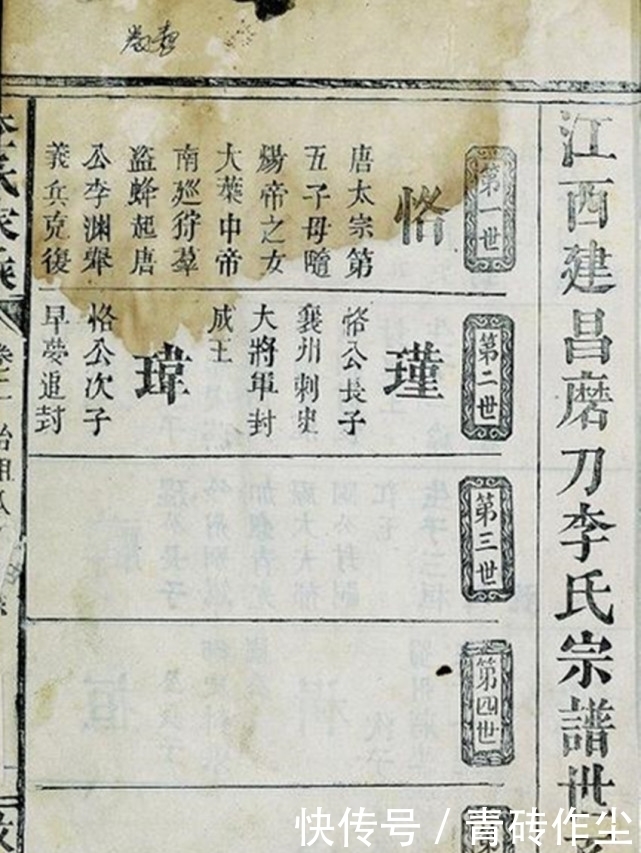 江西建昌磨刀李氏宗譜世
第一世
恪
唐太宗第
五子母隨
煬帝之女
大葉中帝
南廵狩羣
盜蜂起唐
公李渊舉
義兵克復
第二世
瑾
恪公長子
襄州刺史
大將軍封
成王
瑋
恪公次子
早夢追封
第三世
第四世
第
快传号 / 青砖作尘